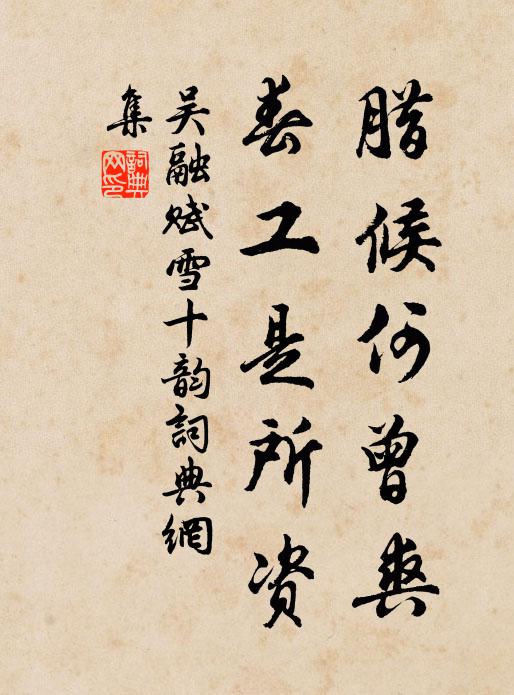 腊候何曾爽
春工是所资
吴融赋雪十韵詞典網
集
詞典
网印